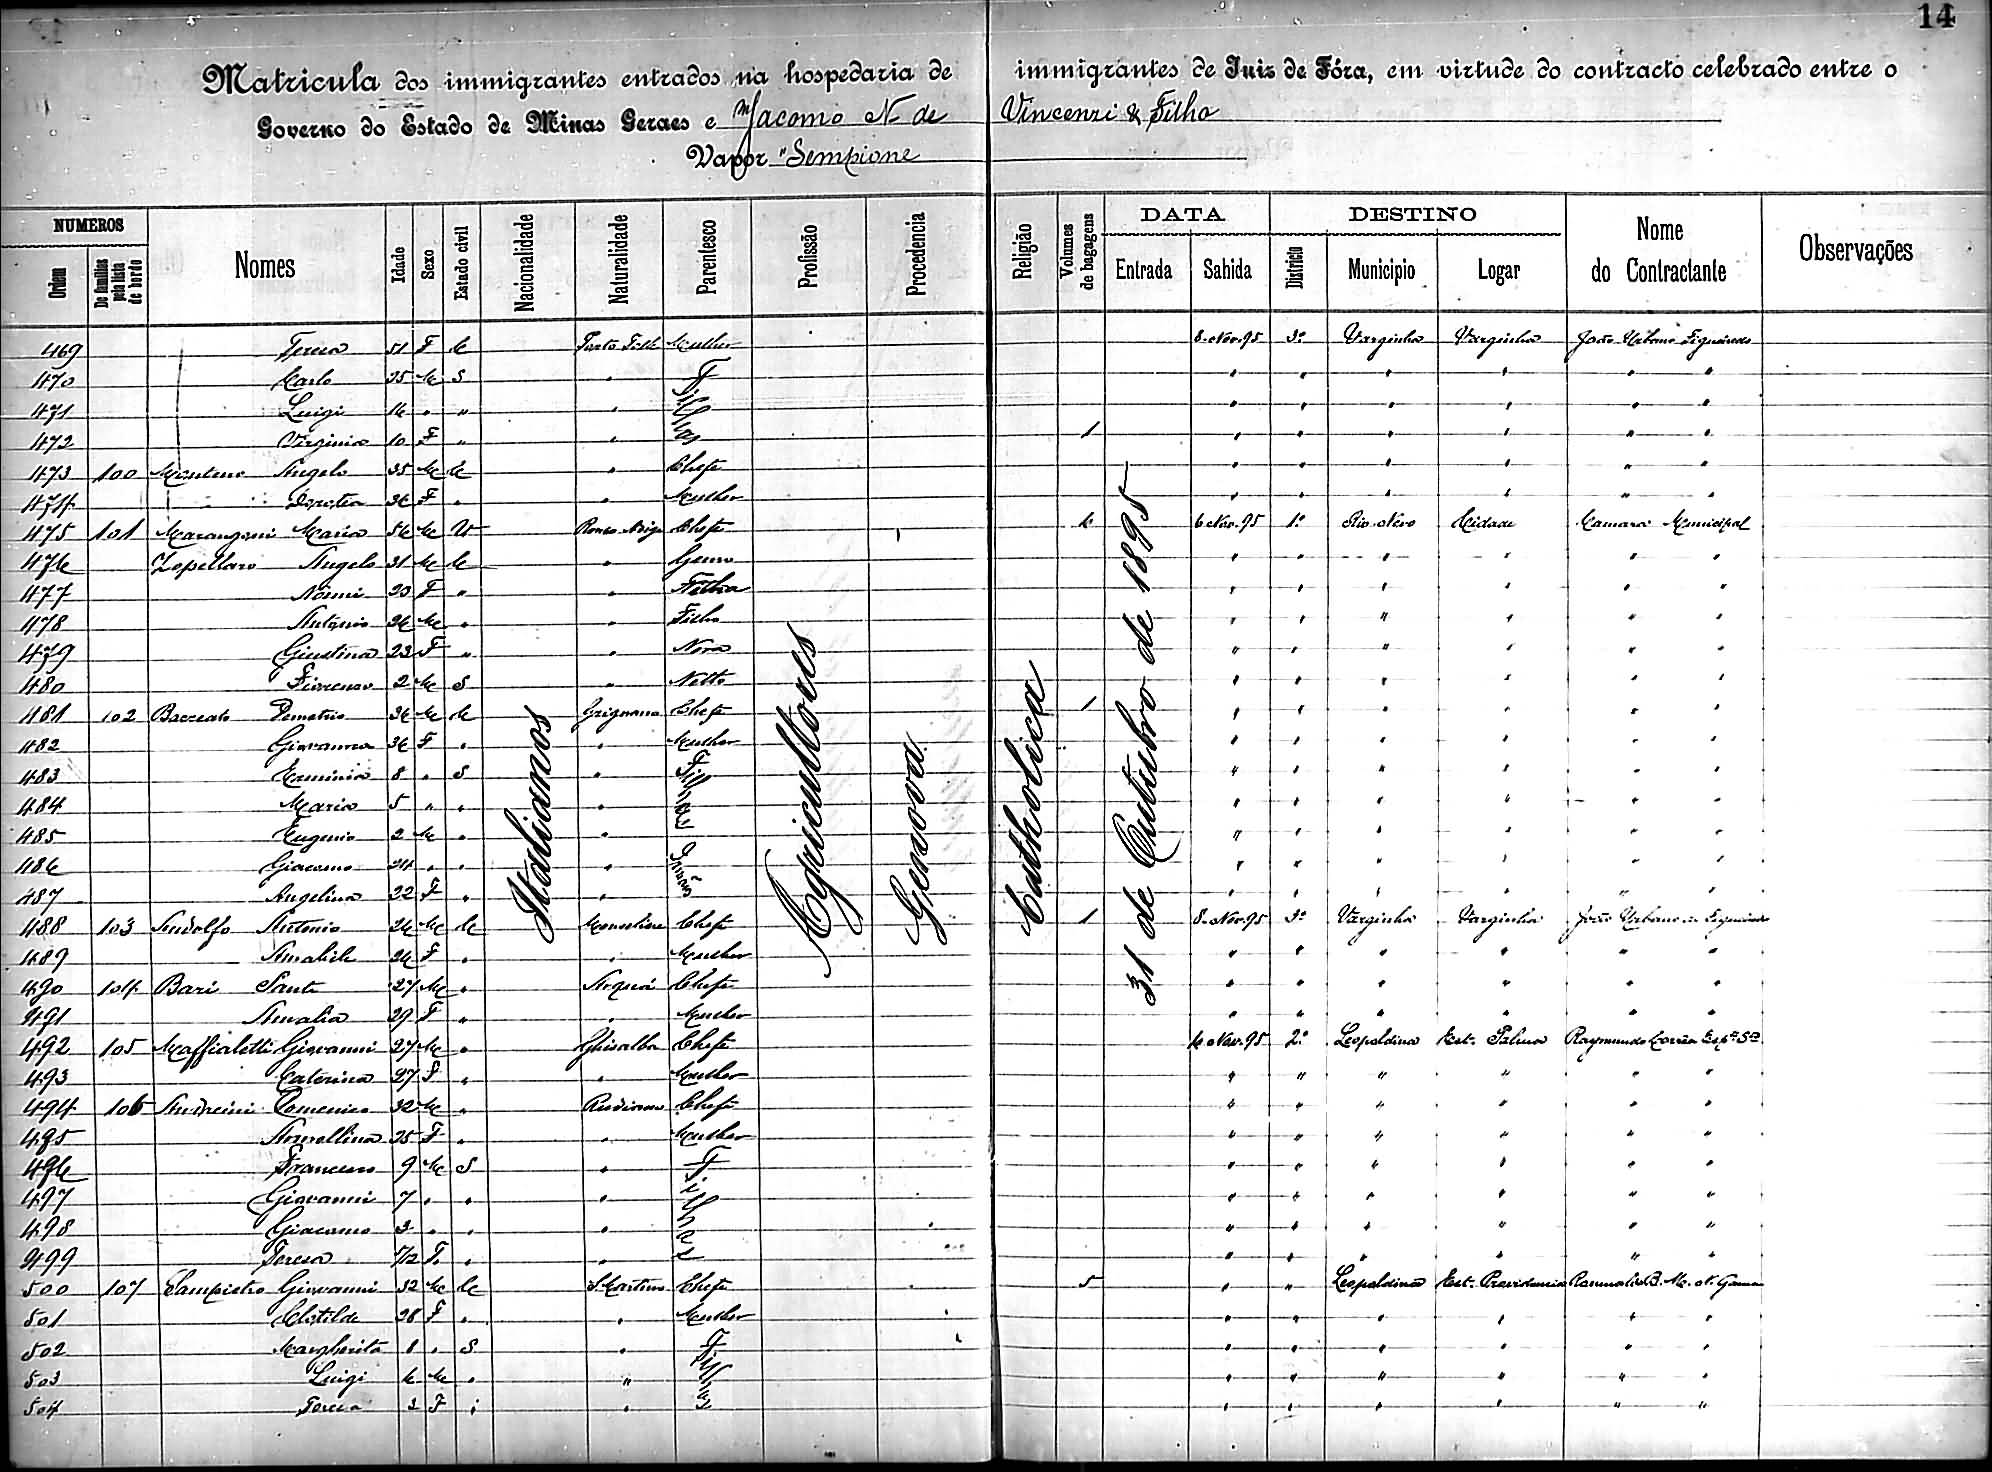 14
Matricula dos immigrantes entrados na hospedaria de immigrantes de Juiz de Fóra, em virtude do contracto celebrado entre o
Governo do Estado de Minas Geraes e Jacomo N. de Vincenzi & Filho
Vapor "Sempione
NUMEROS DATA DESTINO
Ordem De familias pela lista de bordo Nomes Idade Sexo Estado civil Nacionalidade Naturalidade Parentesco Profissão Procedencia Religião Volumes de bagagens Entrada Sahida Districto Municipio Logar Nome do Contractante Observações
Italianos Agricultores Genova Catholica 31 de Outubro de 1895
469 Teresa 51 F C Porto Tolle Mulher 8. Nov. 95 3º Varginha Varginha João Urbano Figueiredo
470 Carlo 25 M S " Filhos " " " " " "
471 Luigi 16 " " " " " " " " "
472 Virginia 10 F " " 1 " " " " " "
473 100 Angelo 35 M C " Chefe " " " " " "
474 Dorotea 36 F " " Mulher " " " " " "
475 101 Marangoni Maria 56 M V Chefe 6 Nov. 95 1º Rio Novo Cidade Camara Municipal
476 Zopellaro Angelo 31 M C " Genro " " " " " "
477 Noemi 23 F " " Filha " " " " " "
478 Antonio 26 M " " Filho " " " " " "
479 Giustina 23 F " " Nora " " " " " "
480 2 M S " Netto " " " " " "
481 102 Demetrio 36 M C Grignano Chefe 1 " " " " " "
482 Giovanna 36 F " " Mulher " " " " " "
483 Erminia 8 " S " Filhos " " " " " "
484 Maria 5 " " " " " " " " "
485 Eugenio 2 M " " " " " " " "
486 Giacomo 24 " " " Irmãos " " " " " "
487 Angelina 22 F " " " " " " " "
488 103 Andolfo Antonio 26 M C Chefe 1 8. Nov. 95 3º Varginha Varginha João Urbano de Figueiredo
489 Amabile 26 F " " Mulher " " " " " "
490 104 Bari Sante 27 M " Arquá Chefe " " " " " "
491 Amalia 29 F " " Mulher " " " " " "
492 105 Maffialetti Giovanni 27 M " Ghisalba Chefe 6 Nov. 95 2º Leopoldina Est. Palma Raymundo Corrêa
493 Caterina 27 F " " Mulher " " " " " "
494 106 Andreini Domenico 32 M " Rudiano Chefe " " " " " "
495 25 F " " Mulher " " " " " "
496 Francesco 9 M S " Filhos " " " " " "
497 Giovanni 7 " " " " " " " " "
498 Giacomo 3 " " " " " " " " "
499 Teresa F " " " " " " " "
500 107 Sampietro Giovanni 32 M C S. Martino Chefe 5 " " Leopoldina Est. Providencia
501 Clotilde 28 F " " Mulher " " " " " "
502 Margherita 8 " S " Filhos " " " " " "
503 Luigi 6 M " " " " " " " "
504 Teresa 2 F " " " " " " " "